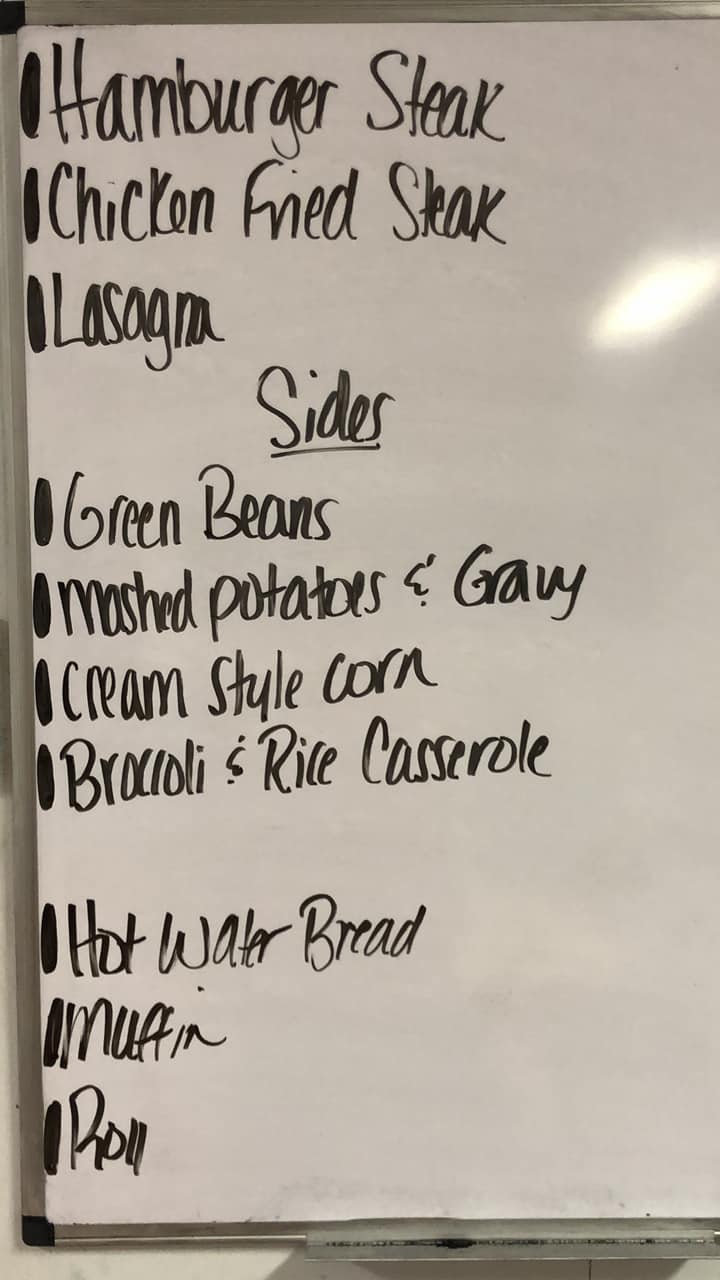 Hamburger Steak
Chicken Fried Steak
Lasagna
Sides
Green Beans
mashed potatoes & Gravy
cream style corn
Broccoli & Rice Casserole
Hot Water Bread
Muffin
Roll